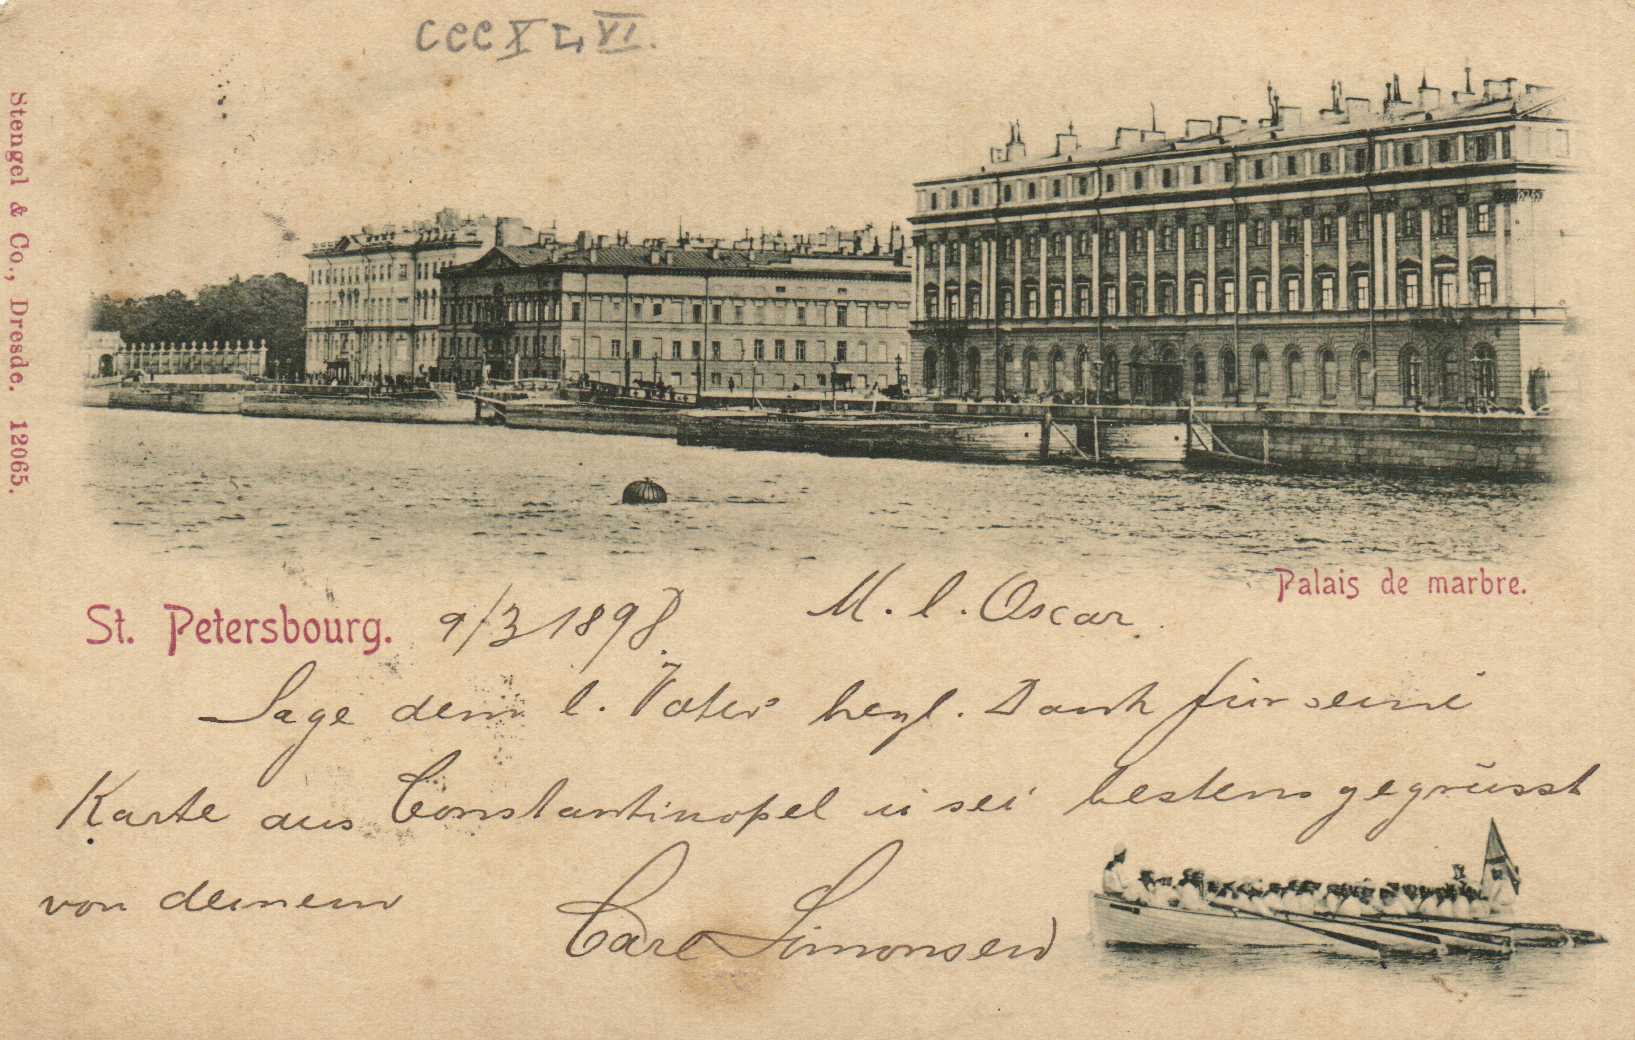 CCCXLVI.
Stengel & Co., Dresde. 12065.
Palais de marbre.
St. Petersbourg. 9/3 1898. M. l. Oscar.
Sage dem l. Vater herzl. Dank für seine
Karte aus Constantinopel u sei bestens gegrüsst
von deinem
Carl Simonsen